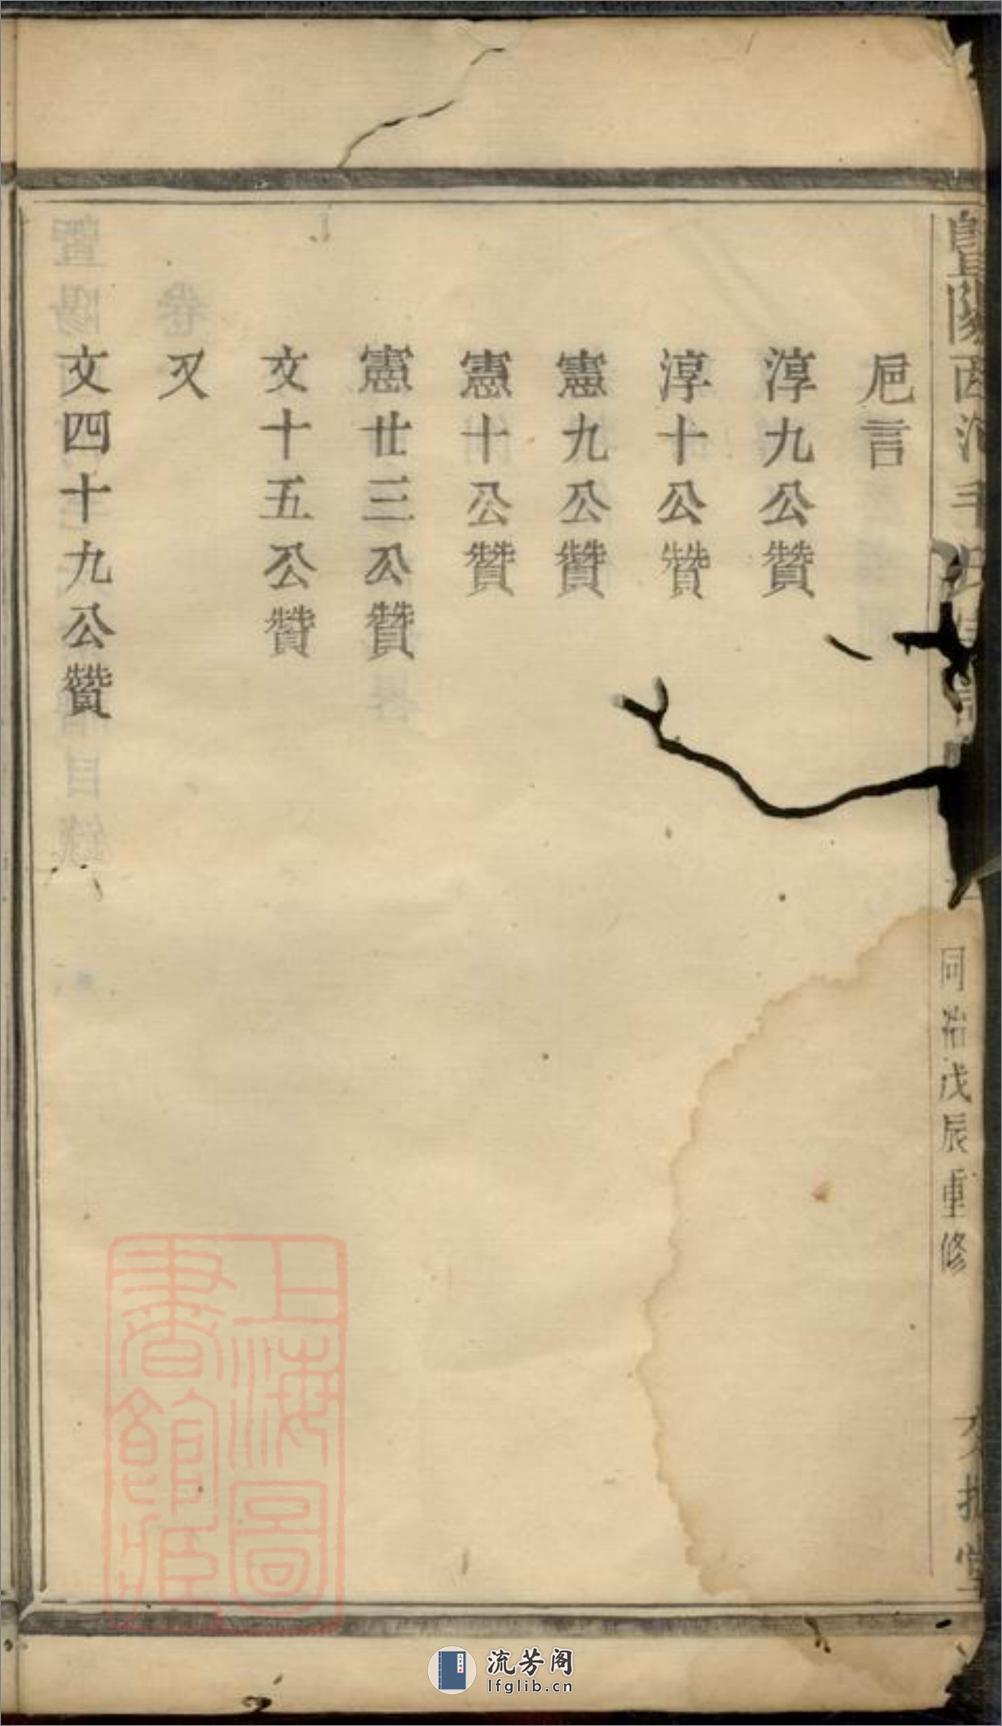 卮言
淳九公贊
淳十公贊
憲九公贊
憲十公贊
憲廿三公贊
文十五公贊
又
文四十九公贊
暨陽西河
同治戊辰重修
堂
上海圖書館藏
流芳阁
lfglib.cn